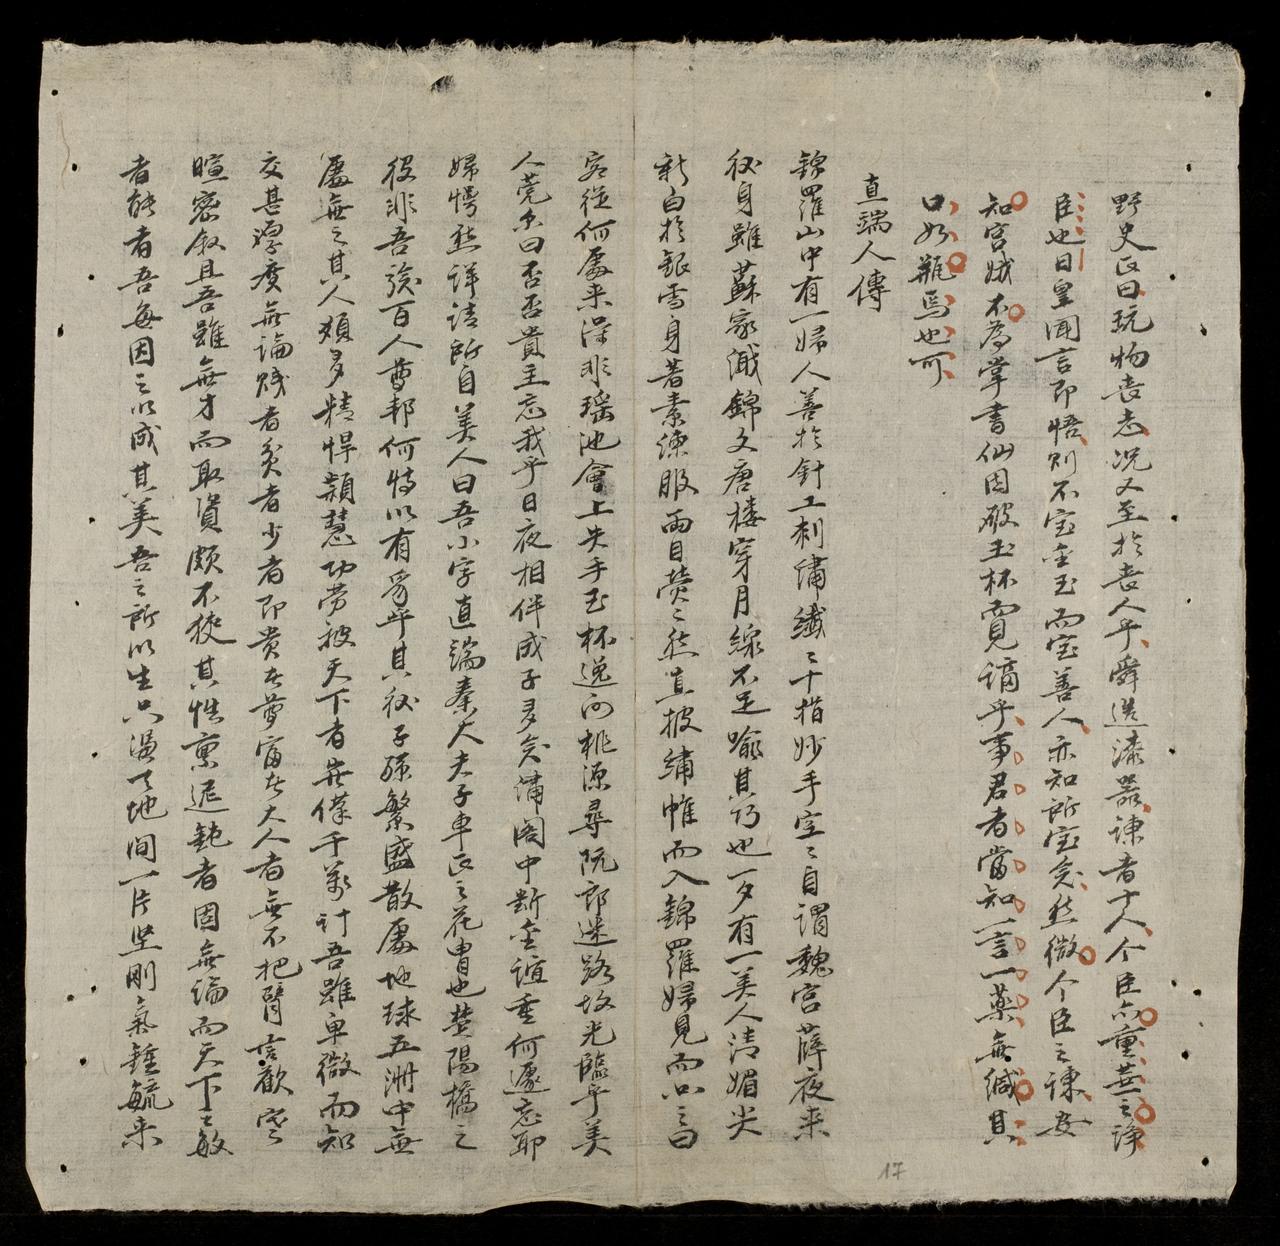 野史氏曰玩物喪志况又至於喪人乎舜造漆器諫者十人个臣亦重英之諍
臣也曰皇聞言即悟則不宝金玉而宝善人亦知所宝矣然微个臣之諫安
知宮娥不為掌書仙因破玉杯覓謫乎事君者當知一言一藥無緘其
口如瓶焉也可
直端人傳
錦羅山中有一婦人善於針工刺繡纖〻十指妙手空〻自謂魏宮薛夜来
後身雖蘇家織錦文唐楼穿月線不足喻其巧也一夕有一美人清媚尖
新白於銀雪身著素練服兩目熒〻然直披繡帷而入錦羅婦見而問之曰
客從何處来深非瑶池會上失手玉杯逸向桃源尋阮郎迷路故光臨乎美
人莞尔曰否否貴主忘我乎日夜相伴成子多矣滿閣中断金誼重何遽忘耶
婦愕然詳請所自美人曰吾小字直端秦大夫子車氏之花胄也楚陽橋之
役非吾族百人尊邦何恃以有爲乎其後子孫繁盛散處地球五洲中無
處無之其人頗多精悍頴慧功勞被天下者無僅千萬計吾雖卑微而知
交甚厚廣無論賤者貧者少者即貴者尊富者大人者無不把臂言歡寒
暄密叙且吾雖無才而取資頗不狹其性稟遲鈍者固無論而天下之敏
者能者吾每因之以成其美吾之所以生只憑天地間一片坚剛氣鍾毓来